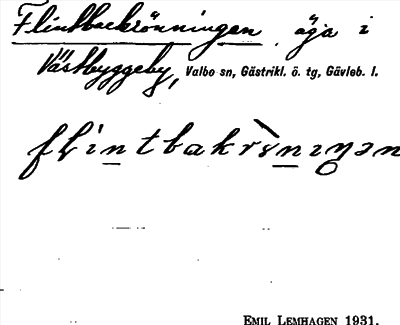 Flintbackrönningen, äga i
Västbyggeby, Valbo sn, Gästrikl. ö. tg, Gävleb. l.
flintbakrònıŋən
EMIL LEMHAGEN 1931.